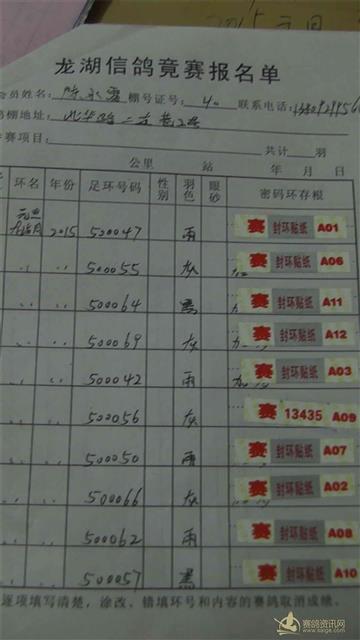 2015元旦
龙湖信鸽竟赛报名单
会员姓名: 棚号证号: 40 联系电话:
棚地址:
赛项目: 共计 羽
公里 站 年 月 日
环名 年份 足环号码 性别 羽色 眼砂 密码环存根
元旦 2015 500047 雨 赛 封环贴纸 A01
〃 〃 500055 灰 赛 封环贴纸 A06
〃 〃 500064 黑 赛 封环贴纸 A11
〃 〃 500069 灰 赛 封环贴纸 A12
〃 〃 500042 雨 赛 封环贴纸 A03
〃 〃 500056 灰 赛 13435 A09
〃 〃 500050 雨 赛 封环贴纸 A07
〃 〃 500066 灰 赛 封环贴纸 A02
〃 〃 500062 雨 赛 封环贴纸 A08
〃 〃 500057 黑 赛 封环贴纸 A10
逐项填写清楚，涂改、错填环号和内容的赛鸽取消成绩。
赛鸽资讯网
www.saige.com